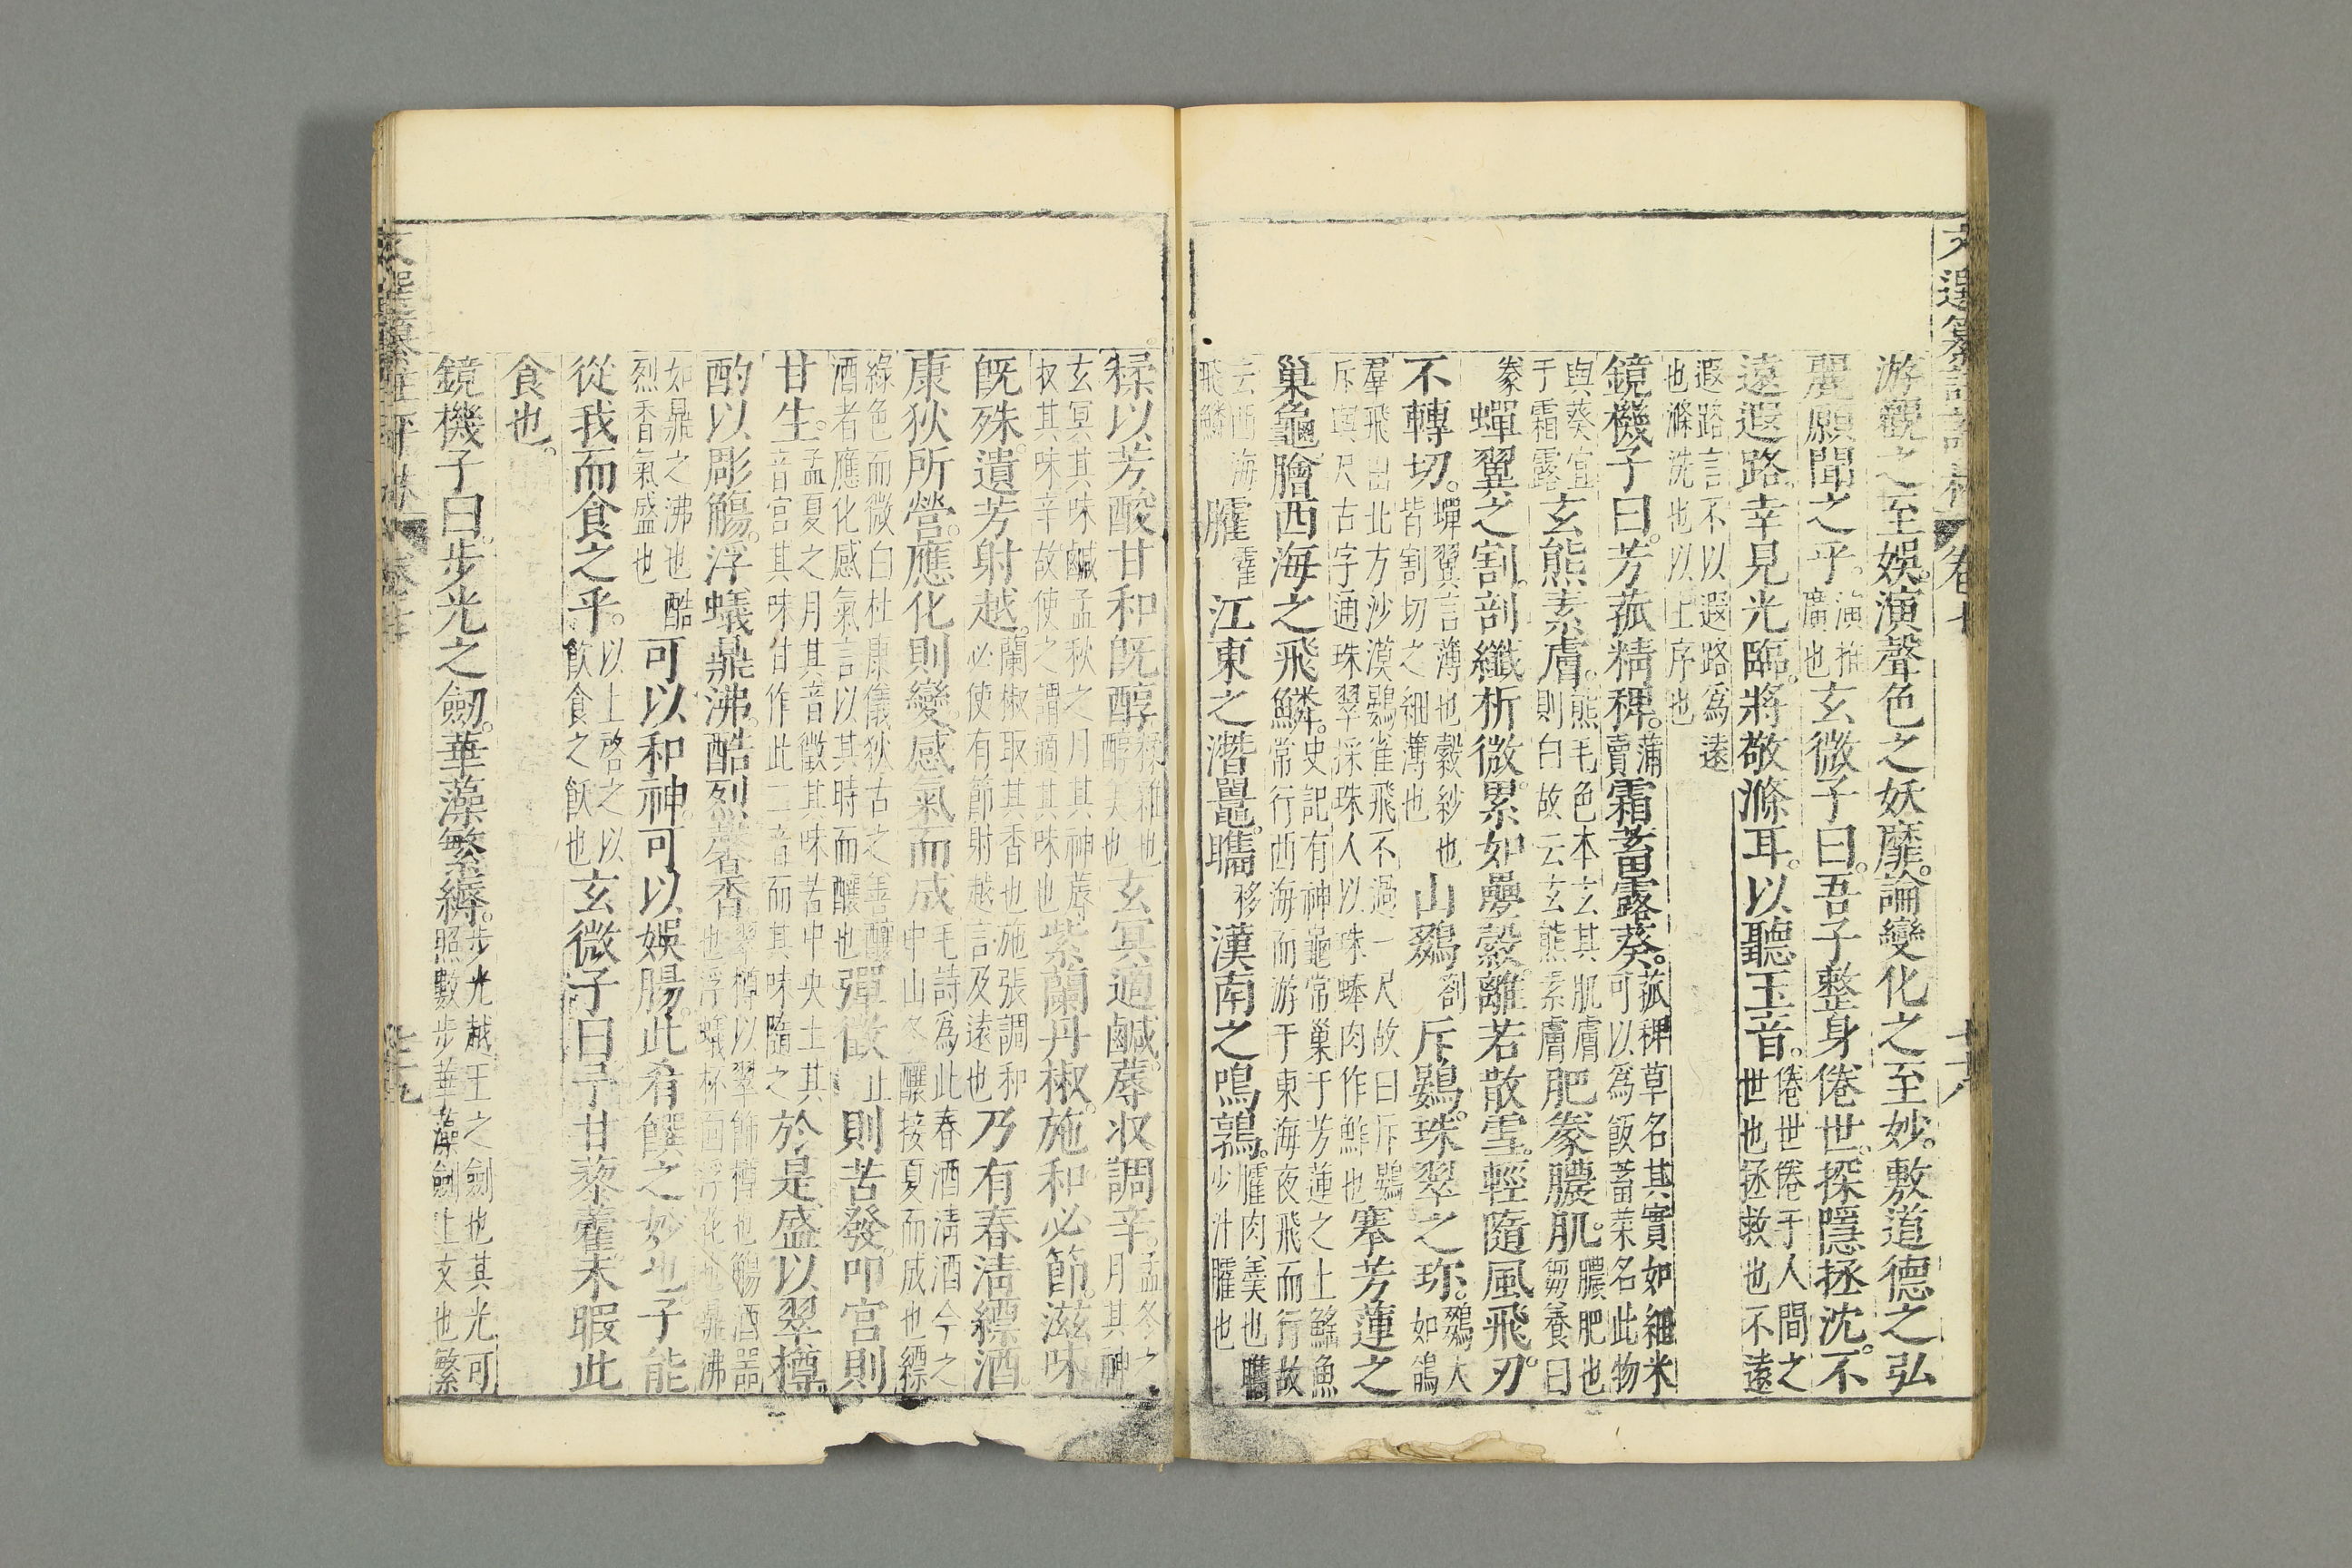 文選纂註評林 卷七 七十八
游觀之至娛。演聲色之妖靡。論變化之至妙。敷道德之弘
麗。願聞之乎。演推廣也玄微子曰。吾子整身倦世。探隱拯沈。不
遠遐路。幸見光臨。將敬滌耳。以聽玉音。倦世倦于人間之世也拯救也不遠
遐路言不以遐路為遠也滌洗也以上序也
鏡機子曰。芳菰精稗。蒲賣霜蓄露葵。菰稗草名其實如細米可以為飯蓄菜名此物
與葵宜于霜露玄熊素膚。熊毛色本玄其肌膚則白故云玄熊素膚肥豢膿肌。膿肥也芻養曰
豢蟬翼之割。剖纖析微。累如疊縠。離若散雪。輕隨風飛。刃
不轉切。蟬翼言薄也縠紗也皆割切之細薄也山鵽劄斥鷃。珠翠之珍。鵽大如鴿
羣飛出北方沙漠鷃雀飛不過一尺故曰斥鷃斥與尺古字通珠翠採珠人以珠蚌肉作鮓也搴芳蓮之
巢龜膾西海之飛鱗。史記有神龜常巢于芳蓮之上鰩魚常行西海而游于東海夜飛而行故
云西海飛鱗臛霍江東之潛鼉。臇移漢南之鳴鶉。臛肉羹也臇少汁臛也
糅以芳酸甘和旣醇糅雜也醇美也玄冥適鹹。蓐收調辛。孟冬之月其神
玄冥其味鹹孟秋之月其神蓐收其味辛故使之調適其味也紫蘭丹椒。施和必節。滋味
旣殊。遺芳射越。蘭椒取其香也施張調和必使有節射越言及遠也乃有春淸縹酒。
康狄所營。應化則變。感氣而成毛詩為此春酒淸酒今之中山冬釀接夏而成也縹
綠色而微白杜康儀狄古之善釀酒者應化感氣言以其時而釀也彈徵止則苦發。叩宮則
甘生。孟夏之月其音徵其味苦中央土其音宮其味甘作此二音而其味隨之於是盛以翠樽。
酌以彫觴。浮蟻鼎沸。酷烈馨香。翠樽以翠飾樽也觴酒器也浮蟻杯面浮花也鼎沸
如鼎之沸也酷烈香氣盛也可以和神。可以娛腸。此肴饌之妙也。子能
從我而食之乎。以上啓之以飲食之飫也玄微子曰。予甘藜藿。未暇此
食也。
鏡機子曰。步光之劒。華藻繁縟。步光越王之劍也其光可照數步華藻劍上文也繁